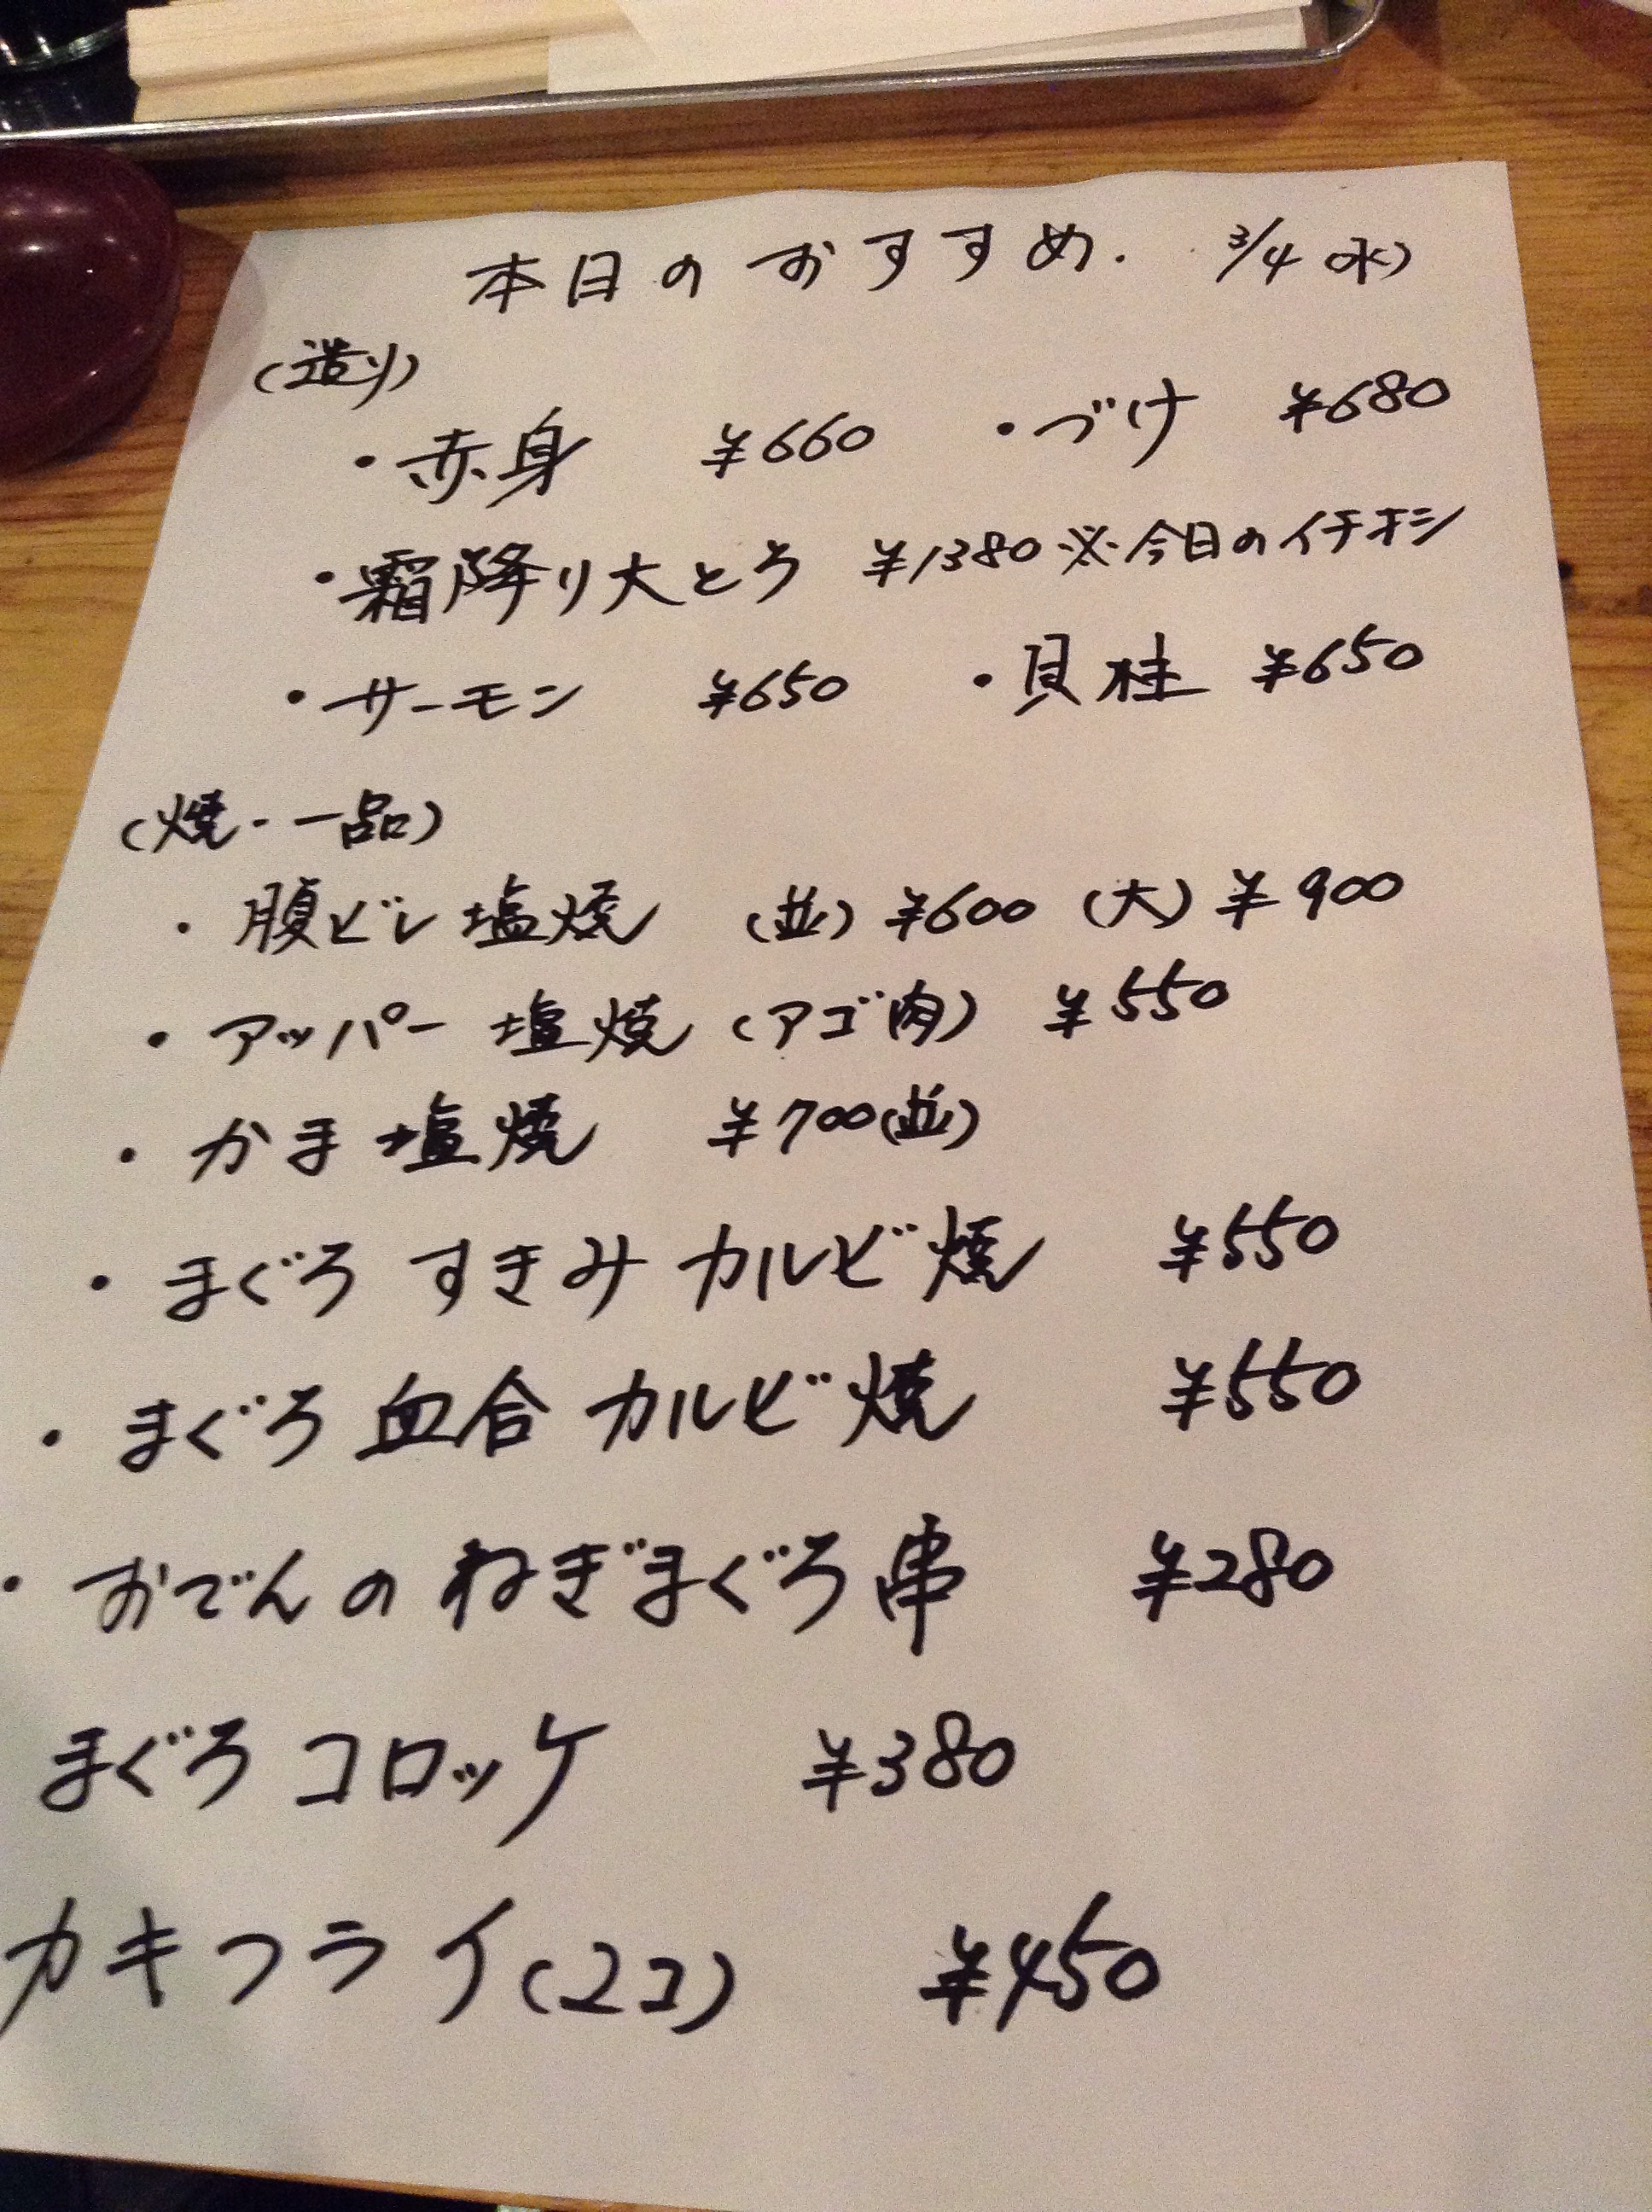 本日のおすすめ. 3/4(水)
(造り)
・赤身 ¥660 ・づけ ¥680
・霜降り大とろ ¥1380 ※今日のイチオシ
・サーモン ¥650 ・貝柱 ¥650
(焼・一品)
・腹ビレ塩焼 (並)¥600 (大)¥900
・アッパー塩焼(アゴ肉) ¥550
・かま塩焼 ¥700(並)
・まぐろすきみカルビ焼 ¥550
・まぐろ血合カルビ焼 ¥550
・おでんのねぎまぐろ串 ¥280
まぐろコロッケ ¥380
カキフライ(2コ) ¥450